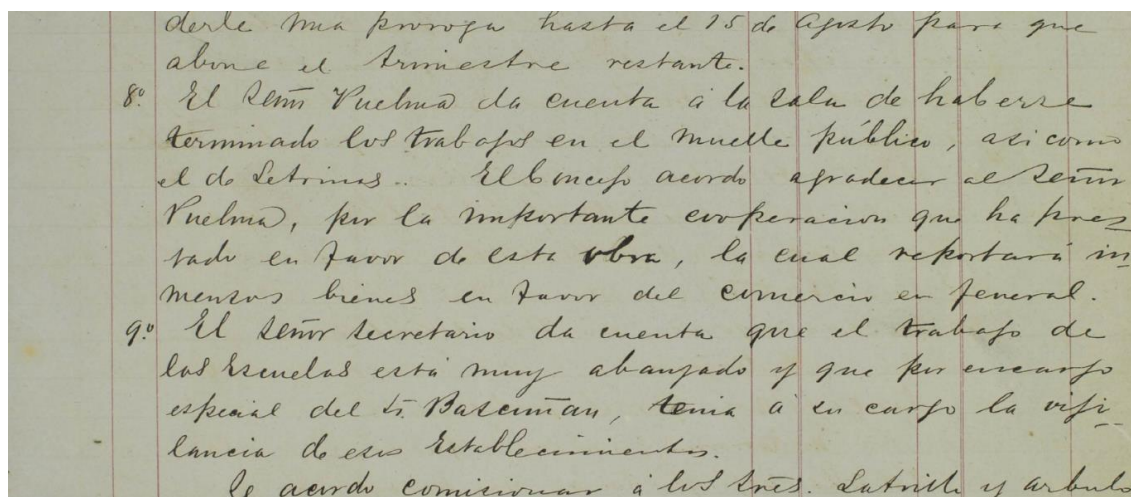 derle una proroga hasta el 15 de Agosto para que
abone el trimestre restante.
8º El Señor Vuelma da cuenta á la sala de haberse
terminado los trabajos en el muelle público, asi como
el de Letrinas.. El Concejo acordo agradecer al Señor
Vuelma, por la importante cooperacion que ha pres_
tado en favor de esta obra, la cual reportará in_
mensos bienes en favor del comercio en jeneral.
9º El Señor Secretario da cuenta que el trabajo de
las Escuelas está muy abanzado y que por encargo
especial del Sr. Bascuñan, tenia á su cargo la viji_
lancia de esos Establecimientos.
Se acordo comisionar á los Sres. Latrille y